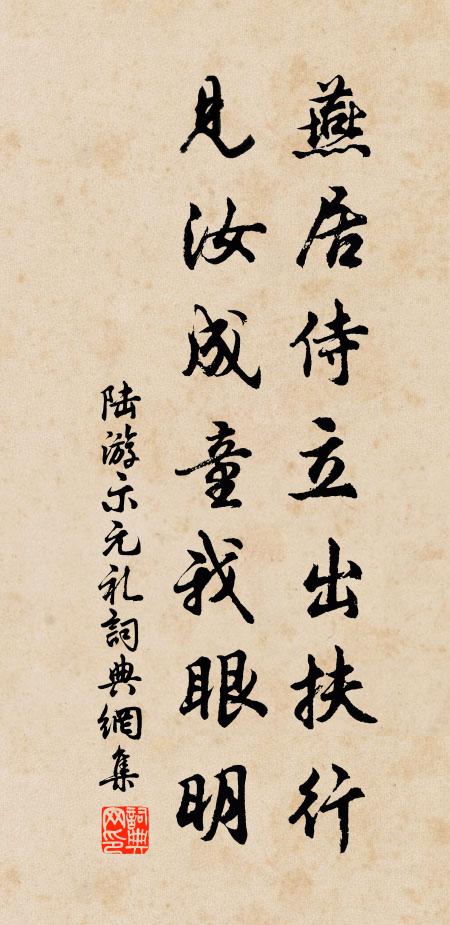 燕居侍立出扶行
見汝成童我眼明
陆游示元礼詞典網集
詞典网印